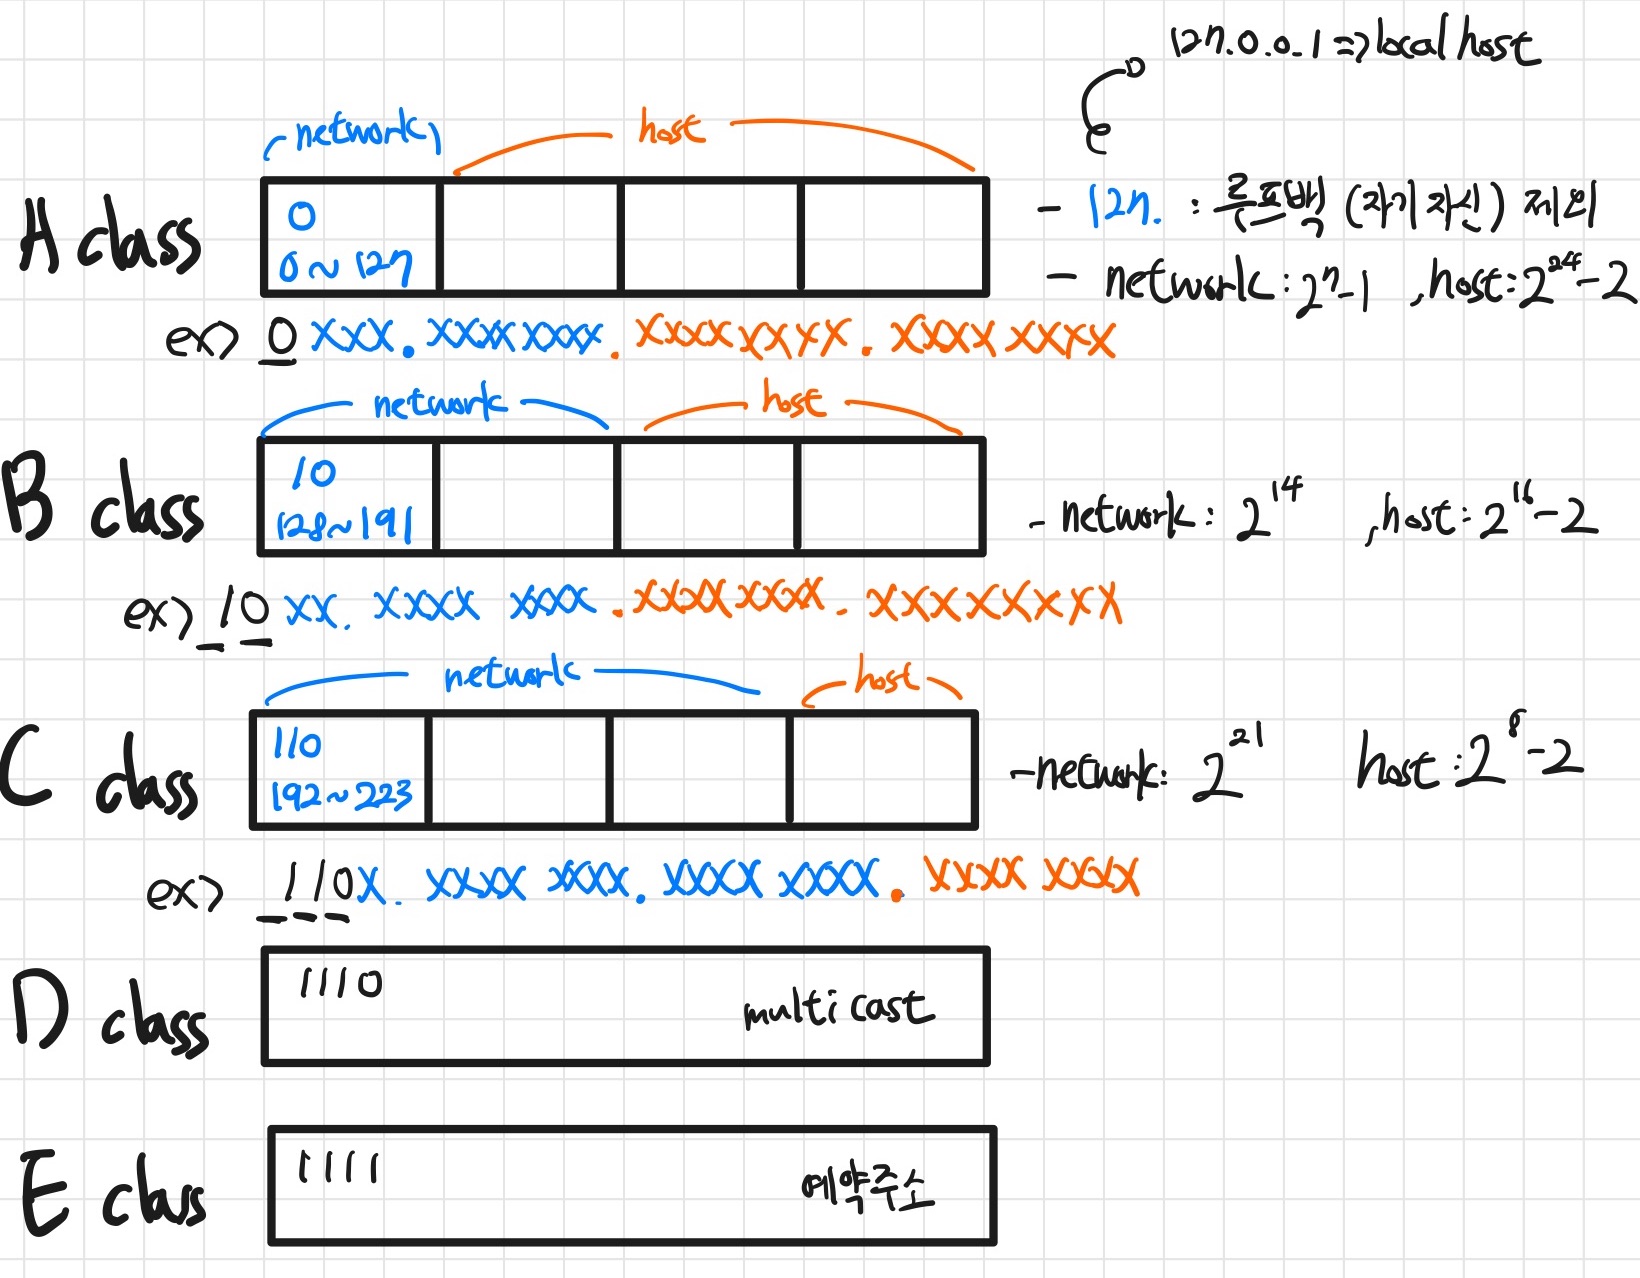 127.0.0.1 => local host
network host
A class
0
0 ~ 127
- 127. : 루프백 (자기 자신) 제외
- network : 2^7-1 , host : 2^24-2
ex> 0 xxx. xxxxxxx. xxxx xxxx. xxxx xxxx
network host
B class
10
128 ~ 191
- network : 2^14 , host : 2^16-2
ex> 10 xx. xxxx xxx. xxxx xxxx. xxxxxxxx
network host
C class
110
192 ~ 223
- network : 2^21 host : 2^8-2
ex> 110x. xxxx xxx. xxxx xxxx. xxxx xxxx
D class
1110
multi cast
E class
1111
예약주소